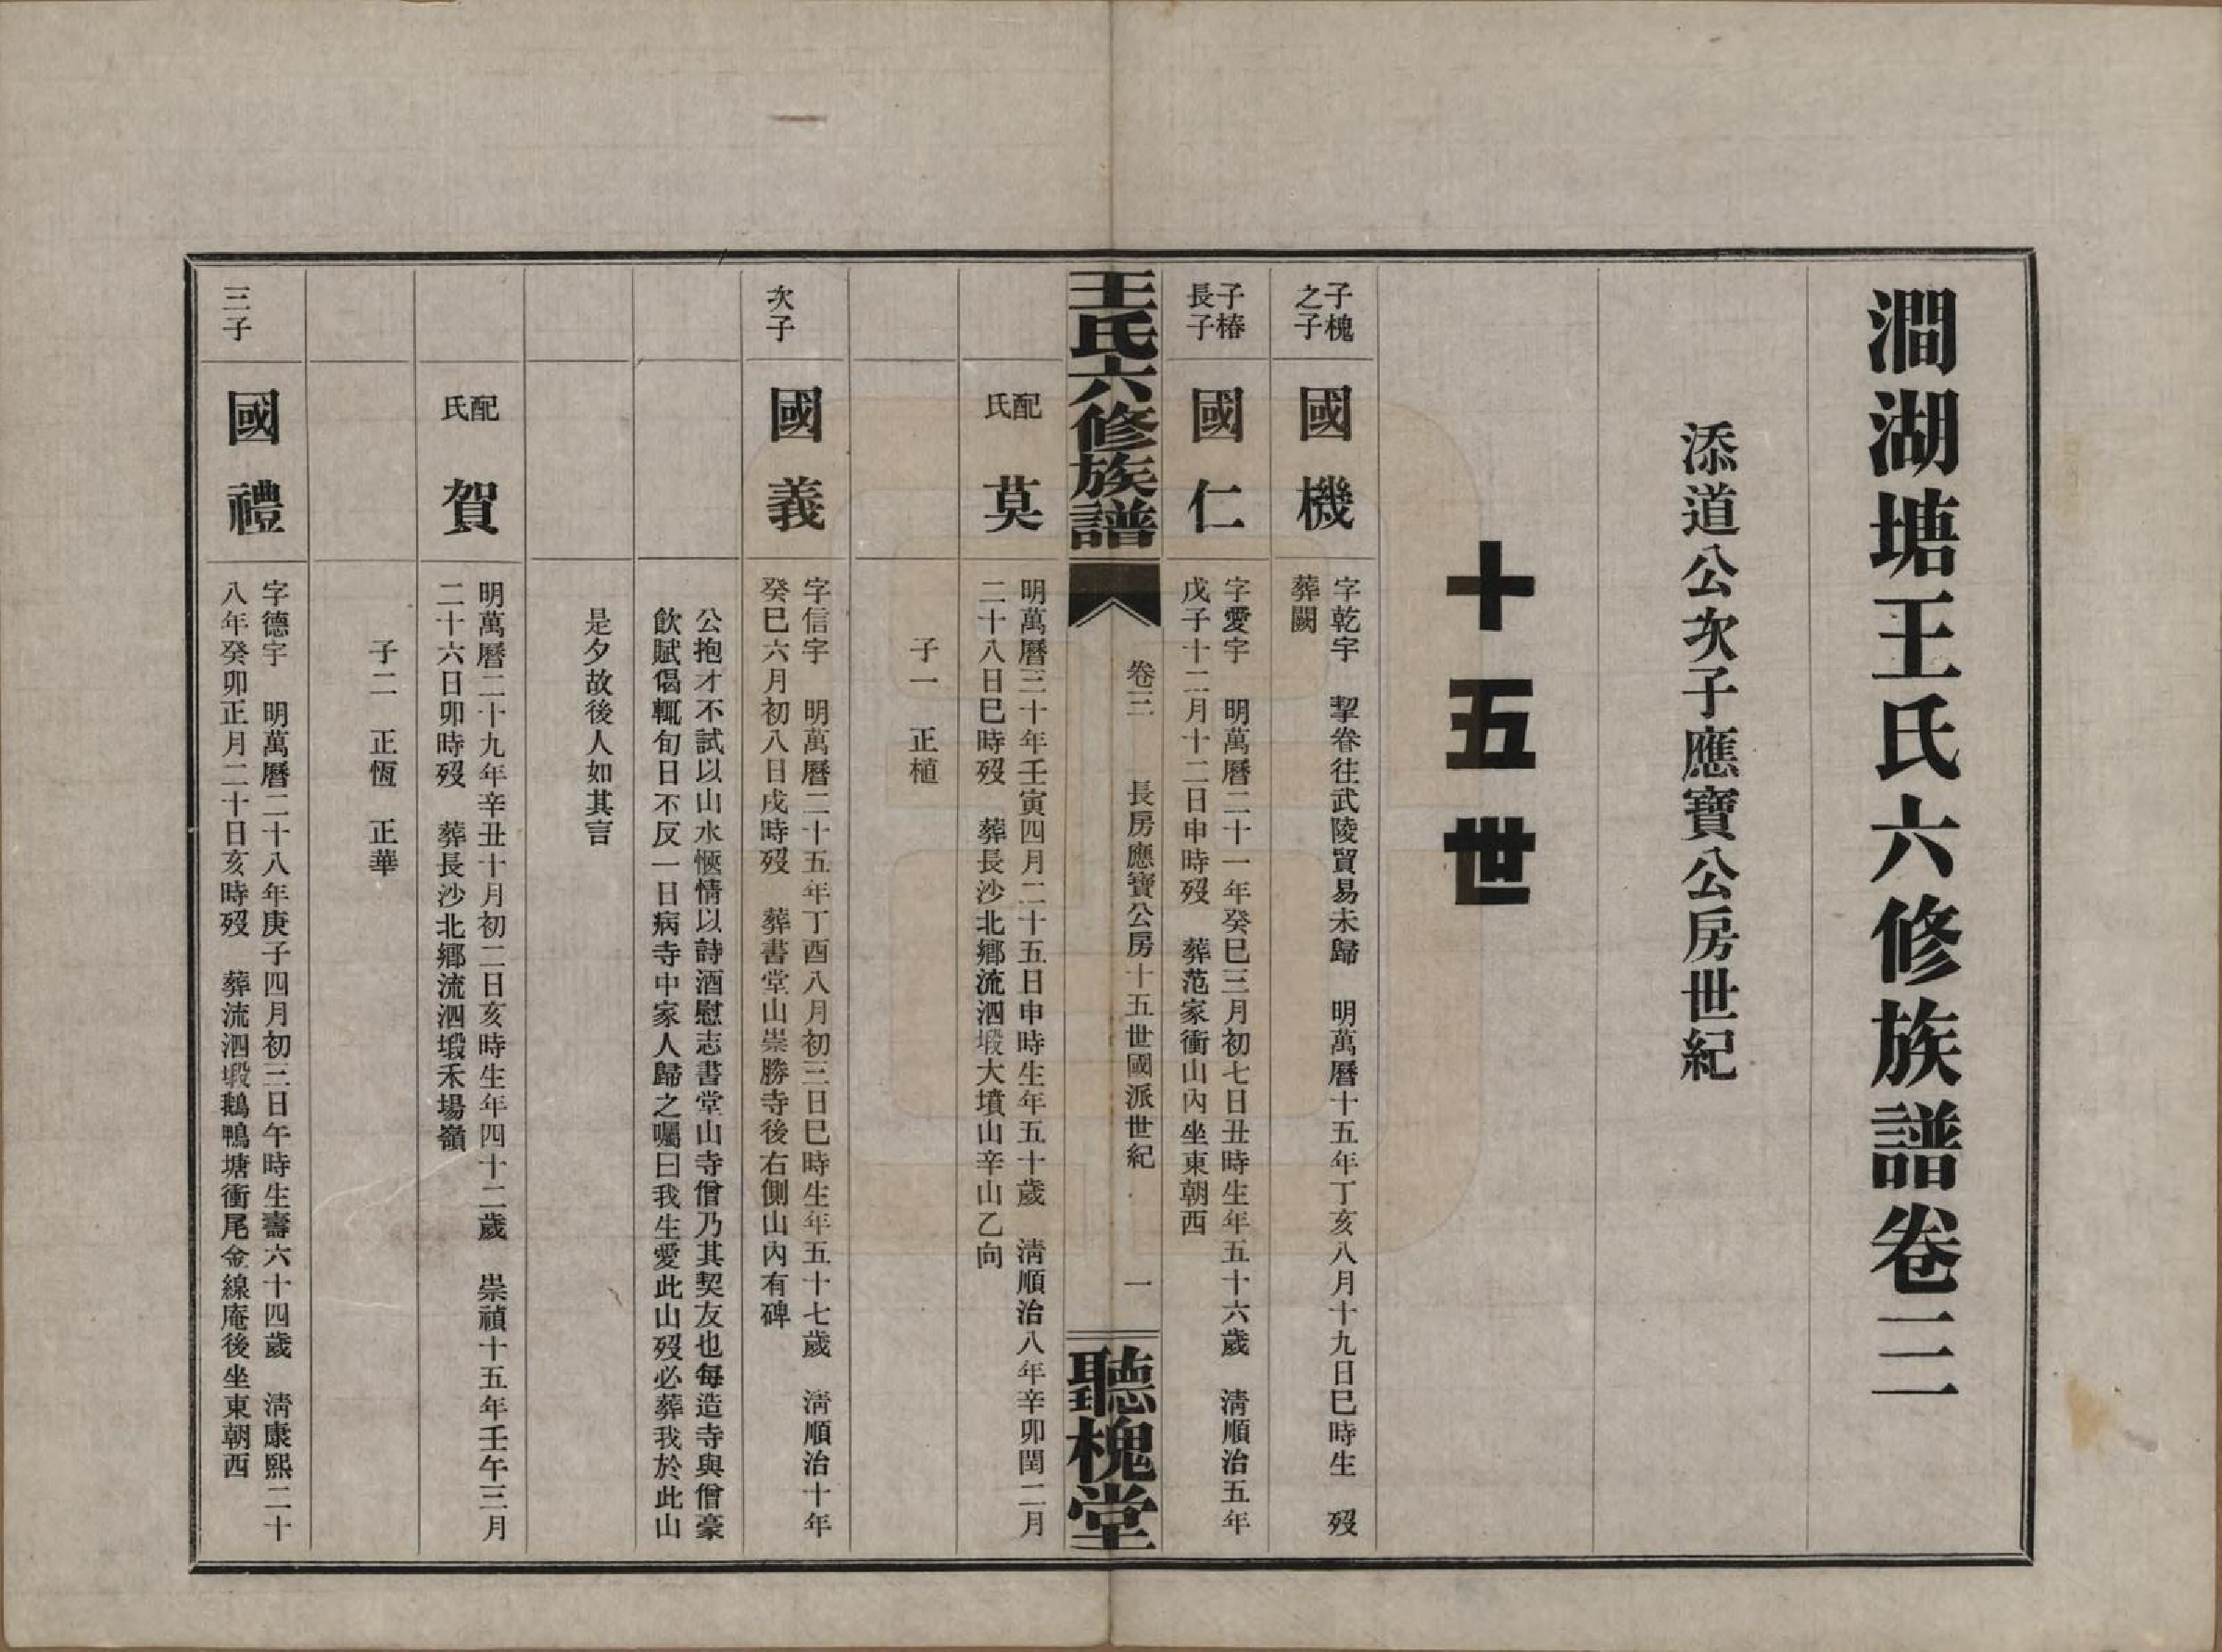 澗湖塘王氏六修族譜卷三
添道公次子應寶公房世紀
十五世
子槐
之子
國機
字乾宇　挈眷往武陵貿易未歸　明萬曆十五年丁亥八月十九日巳時生　歿
葬闕
子椿
長子
國仁
字愛宇　明萬曆二十一年癸巳三月初七日丑時生年五十六歲　淸順治五年
戊子十二月十二日申時歿　葬范家衝山內坐東朝西
王氏六修族譜
卷三　長房應寶公房十五世國派世紀　一
聽槐堂
配
氏
莫
明萬曆三十年壬寅四月二十五日申時生年五十歲　淸順治八年辛卯閏二月
二十八日巳時歿　葬長沙北鄉流泗塅大墳山辛山乙向
子一　正植
次子
國義
字信宇　明萬曆二十五年丁酉八月初三日巳時生年五十七歲　淸順治十年
癸巳六月初八日戌時歿　葬書堂山崇勝寺後右側山內有碑
公抱才不試以山水愜情以詩酒慰志書堂山寺僧乃其契友也每造寺與僧豪
飲賦偈輒旬日不反一日病寺中家人歸之囑曰我生愛此山歿必葬我於此山
是夕故後人如其言
配
氏
賀
明萬曆二十九年辛丑十月初二日亥時生年四十二歲　崇禎十五年壬午三月
二十六日卯時歿　葬長沙北鄉流泗塅禾場嶺
子二　正恆　正華
三子
國禮
字德宇　明萬曆二十八年庚子四月初三日午時生壽六十四歲　淸康熙二十
八年癸卯正月二十日亥時歿　葬流泗塅鵝鴨塘衝尾金線庵後坐東朝西